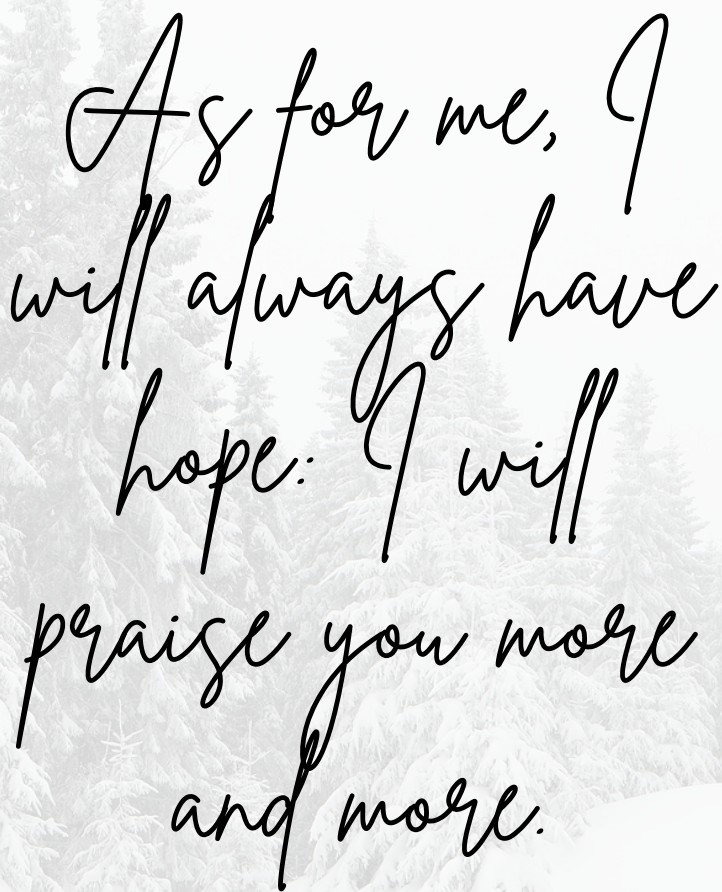 As for me, I
will always have
hope: I will
praise you more
and more.